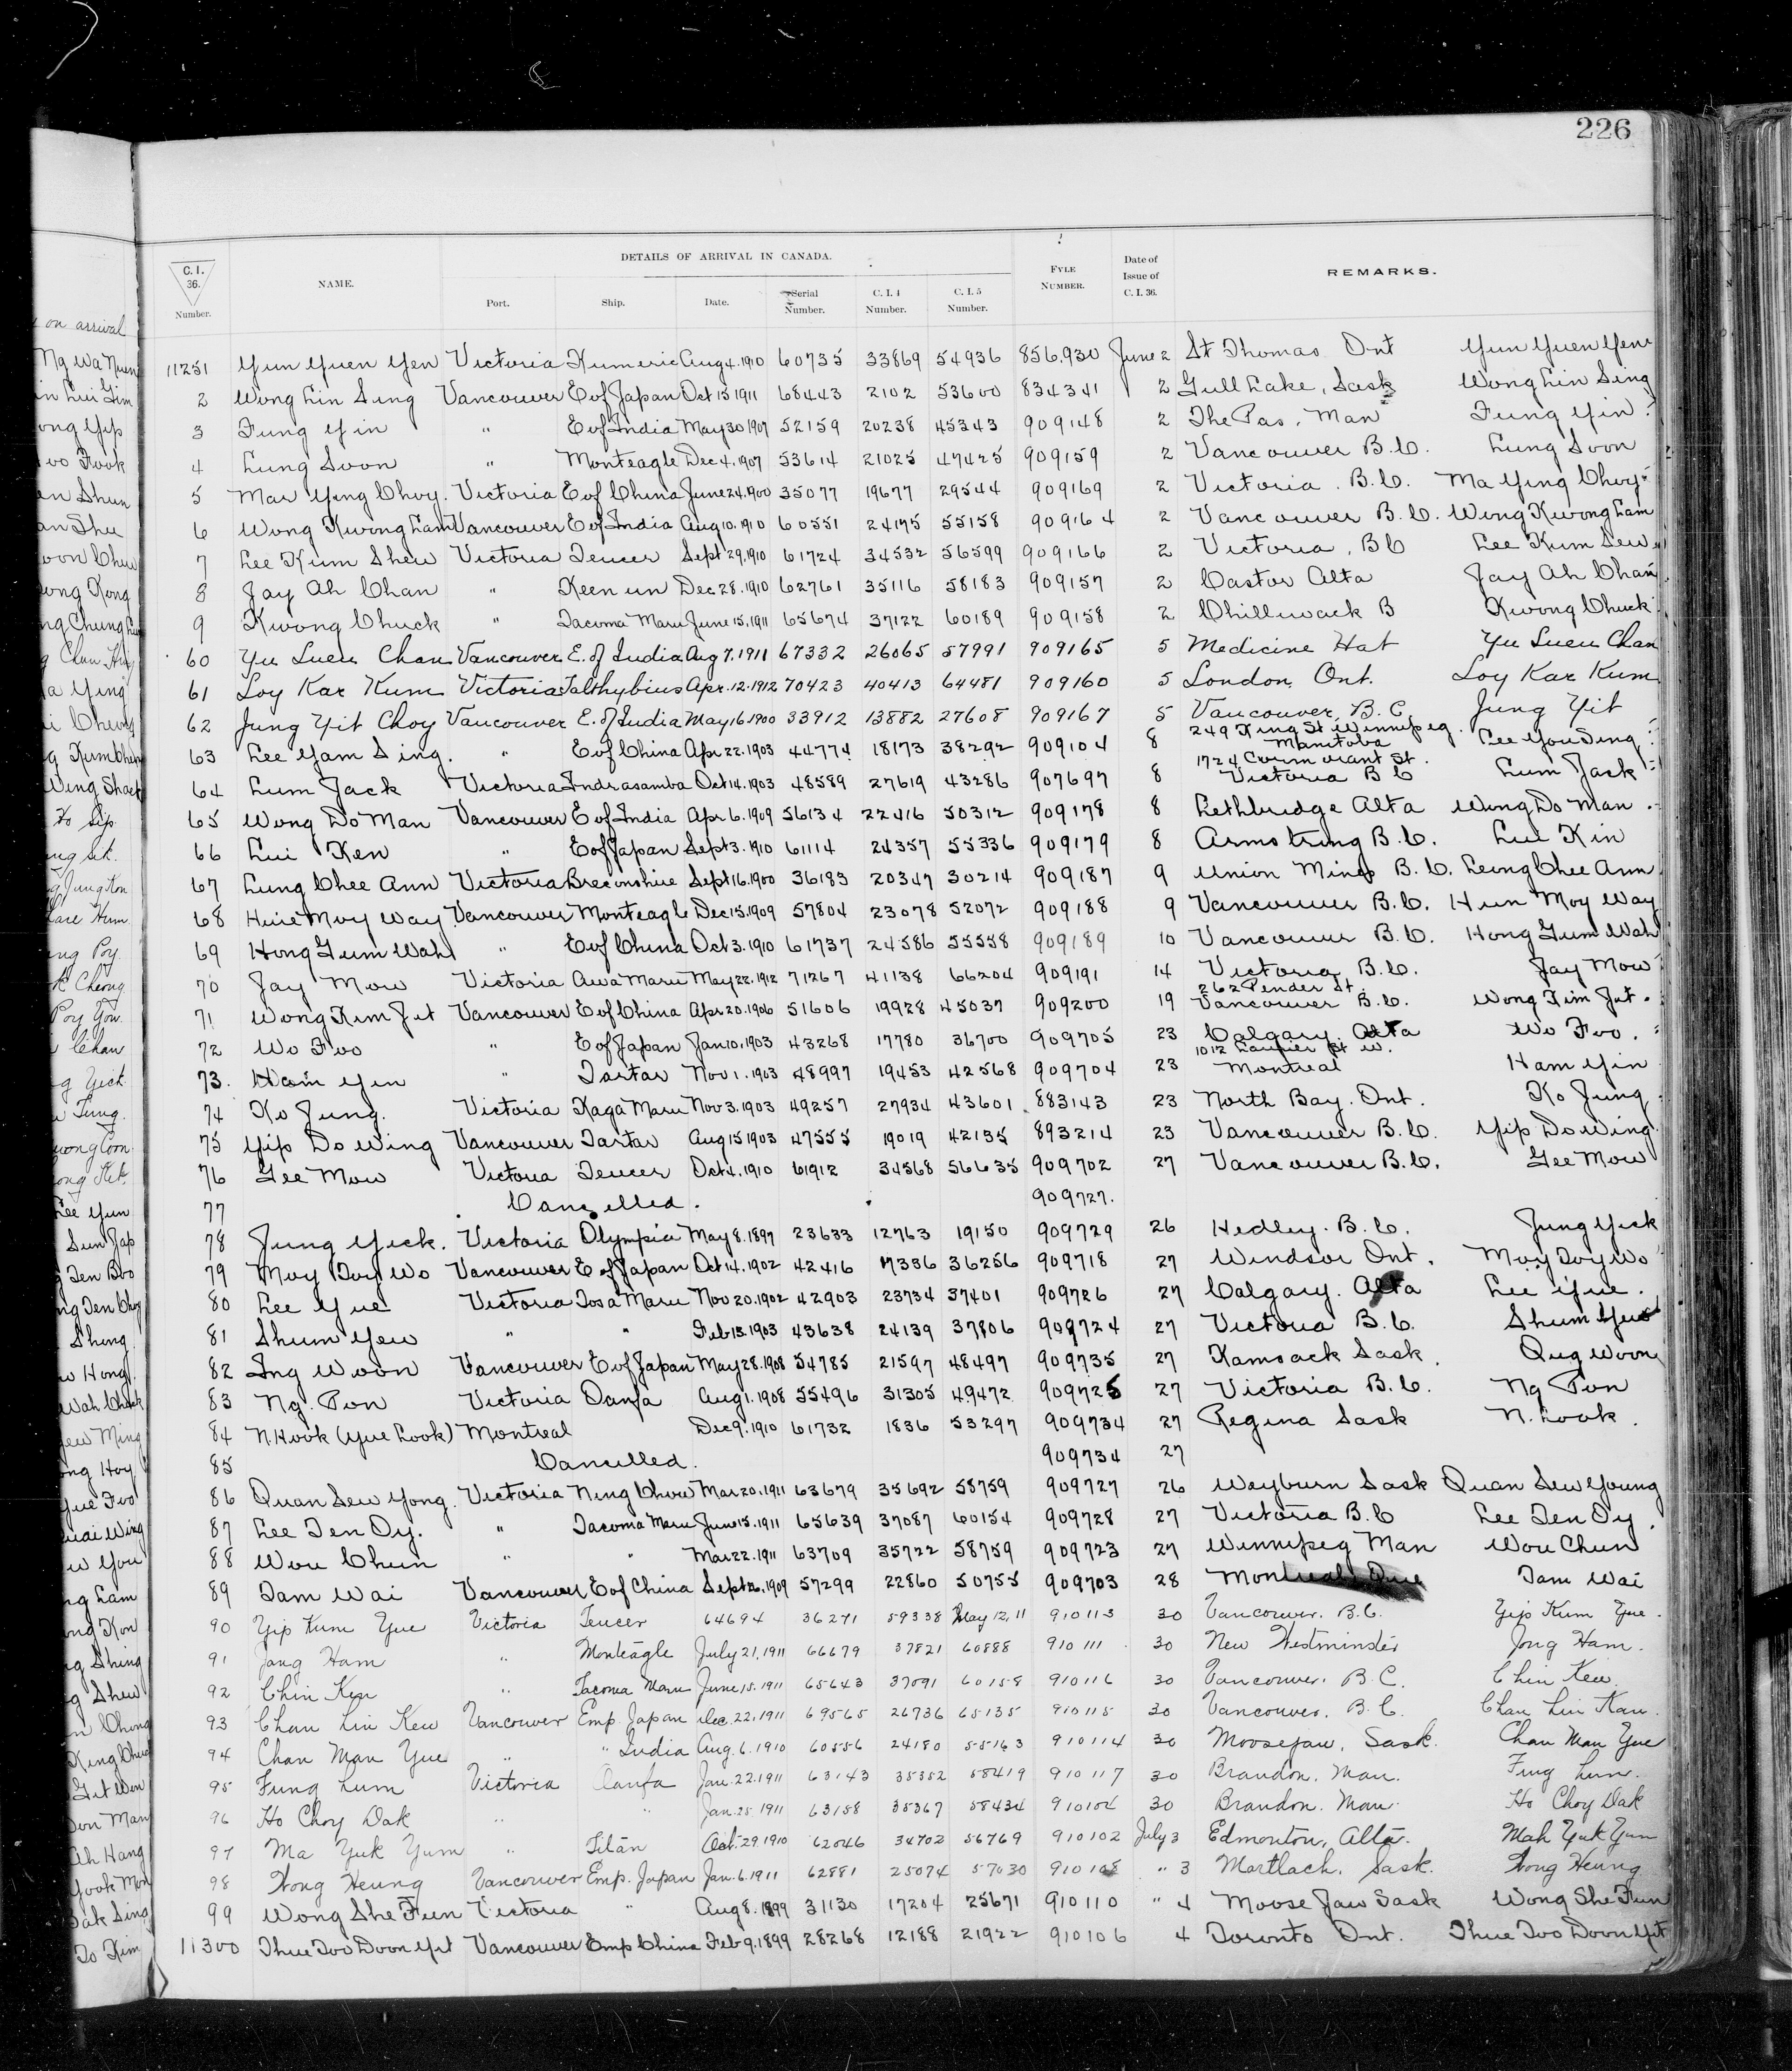 226
DETAILS OF ARRIVAL IN CANADA.
C. I. 36. Number. NAME. Port. Ship. Date. Serial Number. C. I. 4 Number. C. I. 5 Number. FYLE NUMBER. Date of Issue of C. I. 36. REMARKS.
11251 Yun Yuen Yen Victoria Kumeric Aug 4. 1910 60735 33869 54936 856,930 June 2 St Thomas Ont Yun Yuen Yen
2 Wong Lin Sing Vancouver E of Japan Oct 15 1911 68443 2102 53600 834341 2 Gull Lake, Sask Wong Lin Sing
3 Fung Yin " E of India May 30 1907 52159 20238 45343 909148 2 The Pas, Man Fung Yin
4 Lung Soon " Monteagle Dec 4. 1907 53614 21025 47425 909159 2 Vancouver B.C. Lung Soon
5 Mar Ying Choy. Victoria E of China June 24. 1900 35077 19677 29544 909169 2 Victoria. B.C. Ma Ying Choy
6 Wong Kwong Lam Vancouver E of India Aug 10. 1910 60551 24175 55158 909164 2 Vancouver B.C. Wong Kwong Lam
7 Lee Kum Shew Victoria Teucer Sept 29. 1910 61724 34532 56599 909166 2 Victoria, BC Lee Kum Sew
8 Jay Ah Chan " Keenun Dec 28. 1910 62761 35116 58183 909157 2 Castor Alta Jay Ah Chan
9 Kwong Chuck " Tacoma Maru June 15. 1911 65674 37122 60189 909158 2 Chilliwack B Kwong Chuck
60 Yu Luen Chan Vancouver E. of India Aug 7. 1911 67332 26065 57991 909165 5 Medicine Hat Yu Luen Chan
61 Loy Kar Kum Victoria Talthybius Apr. 12. 1912 70423 40413 64481 909160 5 London Ont. Loy Kar Kum
62 Jung Yit Choy Vancouver E. of India May 16. 1900 33912 13882 27608 909167 5 Vancouver, B.C. Jung Yit
63 Lee Yam Sing. " E of China Apr 22. 1903 44774 18173 38292 909104 8 249 King St Winnipeg. Manitoba Lee You Sing
64 Lum Jack Victoria Indrasamba Oct 14. 1903 48589 27619 43286 907697 8 1724 Cormorant St. Victoria B C Lum Jack
65 Wong Do Man Vancouver E of India Apr 6. 1909 56134 22416 50312 909178 8 Lethbridge Alta Wong Do Man
66 Lui Ken " E of Japan Sept 3. 1910 61114 24357 55336 909179 8 Armstrong B.C. Lui Kin
67 Lung Chee Ann Victoria Breconshire Sept 16. 1900 36183 20347 30214 909187 9 Union Mines B.C. Leong Chee Ann
68 Huie Moy Way Vancouver Monteagle Dec 15. 1909 57804 23078 52072 909188 9 Vancouver B.C. Hun Moy Way
69 Hong Gum Wah " E of China Oct 3. 1910 61737 24586 55558 909189 10 Vancouver B.C. Hong Gum Wah
70 Jay Mow Victoria Awa Maru May 22. 1912 71267 41138 66204 909191 14 Victoria B.C. Jay Mow
71 Wong Kim Jut Vancouver E of China Apr 20. 1906 51606 19928 45037 909200 19 262 Pender St. Vancouver B.C. Wong Kim Jut.
72 Wo Foo " E of Japan Jan 10. 1903 43268 17780 36700 909705 23 Calgary. Alta Wo Foo.
73. Ham Yen " Tartar Nov 1. 1903 48997 19453 42568 909704 23 1012 Laurier St W. Montreal Ham Yin
74 Ko Jung. Victoria Kaga Maru Nov 3. 1903 49257 27934 43601 883143 23 North Bay. Ont. Ko Jung
75 Yip Do Wing Vancouver Tartar Aug 15 1903 47555 19019 42135 893214 23 Vancouver B.C. Yip Do Wing
76 Gee Mow Victoria Teucer Oct 4. 1910 61912 34568 56635 909702 27 Vancouver B.C. Gee Mow
77 Cancelled. 909727.
78 Jung Yick. Victoria Olympia May 8. 1897 23633 12763 19150 909729 26 Hedley. B.C. Jung Yick
79 Moy Doy Wo Vancouver E of Japan Oct 14. 1902 42416 17336 36256 909718 27 Windsor Ont. Moy Doy Wo
80 Lee Yue Victoria Tosa Maru Nov 20. 1902 42903 23734 37401 909726 27 Calgary. Alta Lee Yue.
81 Shum Yew " " Feb 13. 1903 43638 24139 37806 909724 27 Victoria B.C. Shum Yew
82 Ing Woon Vancouver E of Japan May 28. 1908 54785 21597 48497 909735 27 Kamsack Sask. Ong Woon
83 Ng. Pon Victoria Oanfa Aug 1. 1908 55496 31305 49472 909725 27 Victoria B.C. Ng Pon
84 N Hook (Yue Look) Montreal Dec 9. 1910 61732 1836 53297 909734 27 Regina Sask N. Look.
85 Cancelled. 909734 27
86 Quan Sew Yong. Victoria Ning Chow Mar 20. 1911 63679 35692 58759 909727 26 Weyburn Sask Quan Sew Young
87 Lee Den Oy. " Tacoma Maru June 15. 1911 65639 37087 60154 909728 27 Victoria B.C Lee Den Oy.
88 Wou Chun " " Mar 22. 1911 63709 35722 58759 909723 27 Winnipeg Man Wou Chun
89 Dam Wai Vancouver E of China Sept 1909 57299 22860 50755 909703 28 Montreal Que Dam Wai
90 Yip Kum Yue Victoria Teucer 64694 36271 59338 May 12, 11 910113 30 Vancouver. B.C. Yip Kum Yue.
91 Jang Ham " Monteagle July 21, 1911 66679 37821 60888 910111 30 New Westminster Jong Ham.
92 Chin Ken " Tacoma Maru June 15. 1911 65643 37091 60158 910116 30 Vancouver. B.C. Chin Kew
93 Chan Lin Kew Vancouver Emp. Japan Dec. 22, 1911 69565 26736 65135 910115 30 Vancouver. B.C. Chan Lin Kau.
94 Chan Man Yue " " India Aug. 6. 1910 60556 24180 55163 910114 30 Moosejaw, Sask. Chan Man Yue
95 Fung Lum Victoria Oanfa Jan. 22. 1911 63143 35352 58419 910117 30 Brandon. Man. Fung Lum.
96 Ho Choy Dak " " Jan. 25. 1911 63158 35367 58434 910104 30 Brandon. Man. Ho Choy Dak
97 Ma Yuk Yum " Titan Oct. 29. 1910 62046 34702 56769 910102 July 3 Edmonton, Alta. Mah Yuk Yum
98 Wong Heung Vancouver Emp. Japan Jan. 6. 1911 62881 25074 57030 910108 " 3 Mortlach, Sask. Wong Heung
99 Wong She Fun Victoria " Aug 8. 1899 31130 17204 25671 910110 " 4 Moose Jaw Sask Wong She Fun
11300 Thue Too Doon Yit Vancouver Emp China Feb 9. 1899 28268 12188 21922 910106 4 Toronto Ont. Thue Too Doon Yit